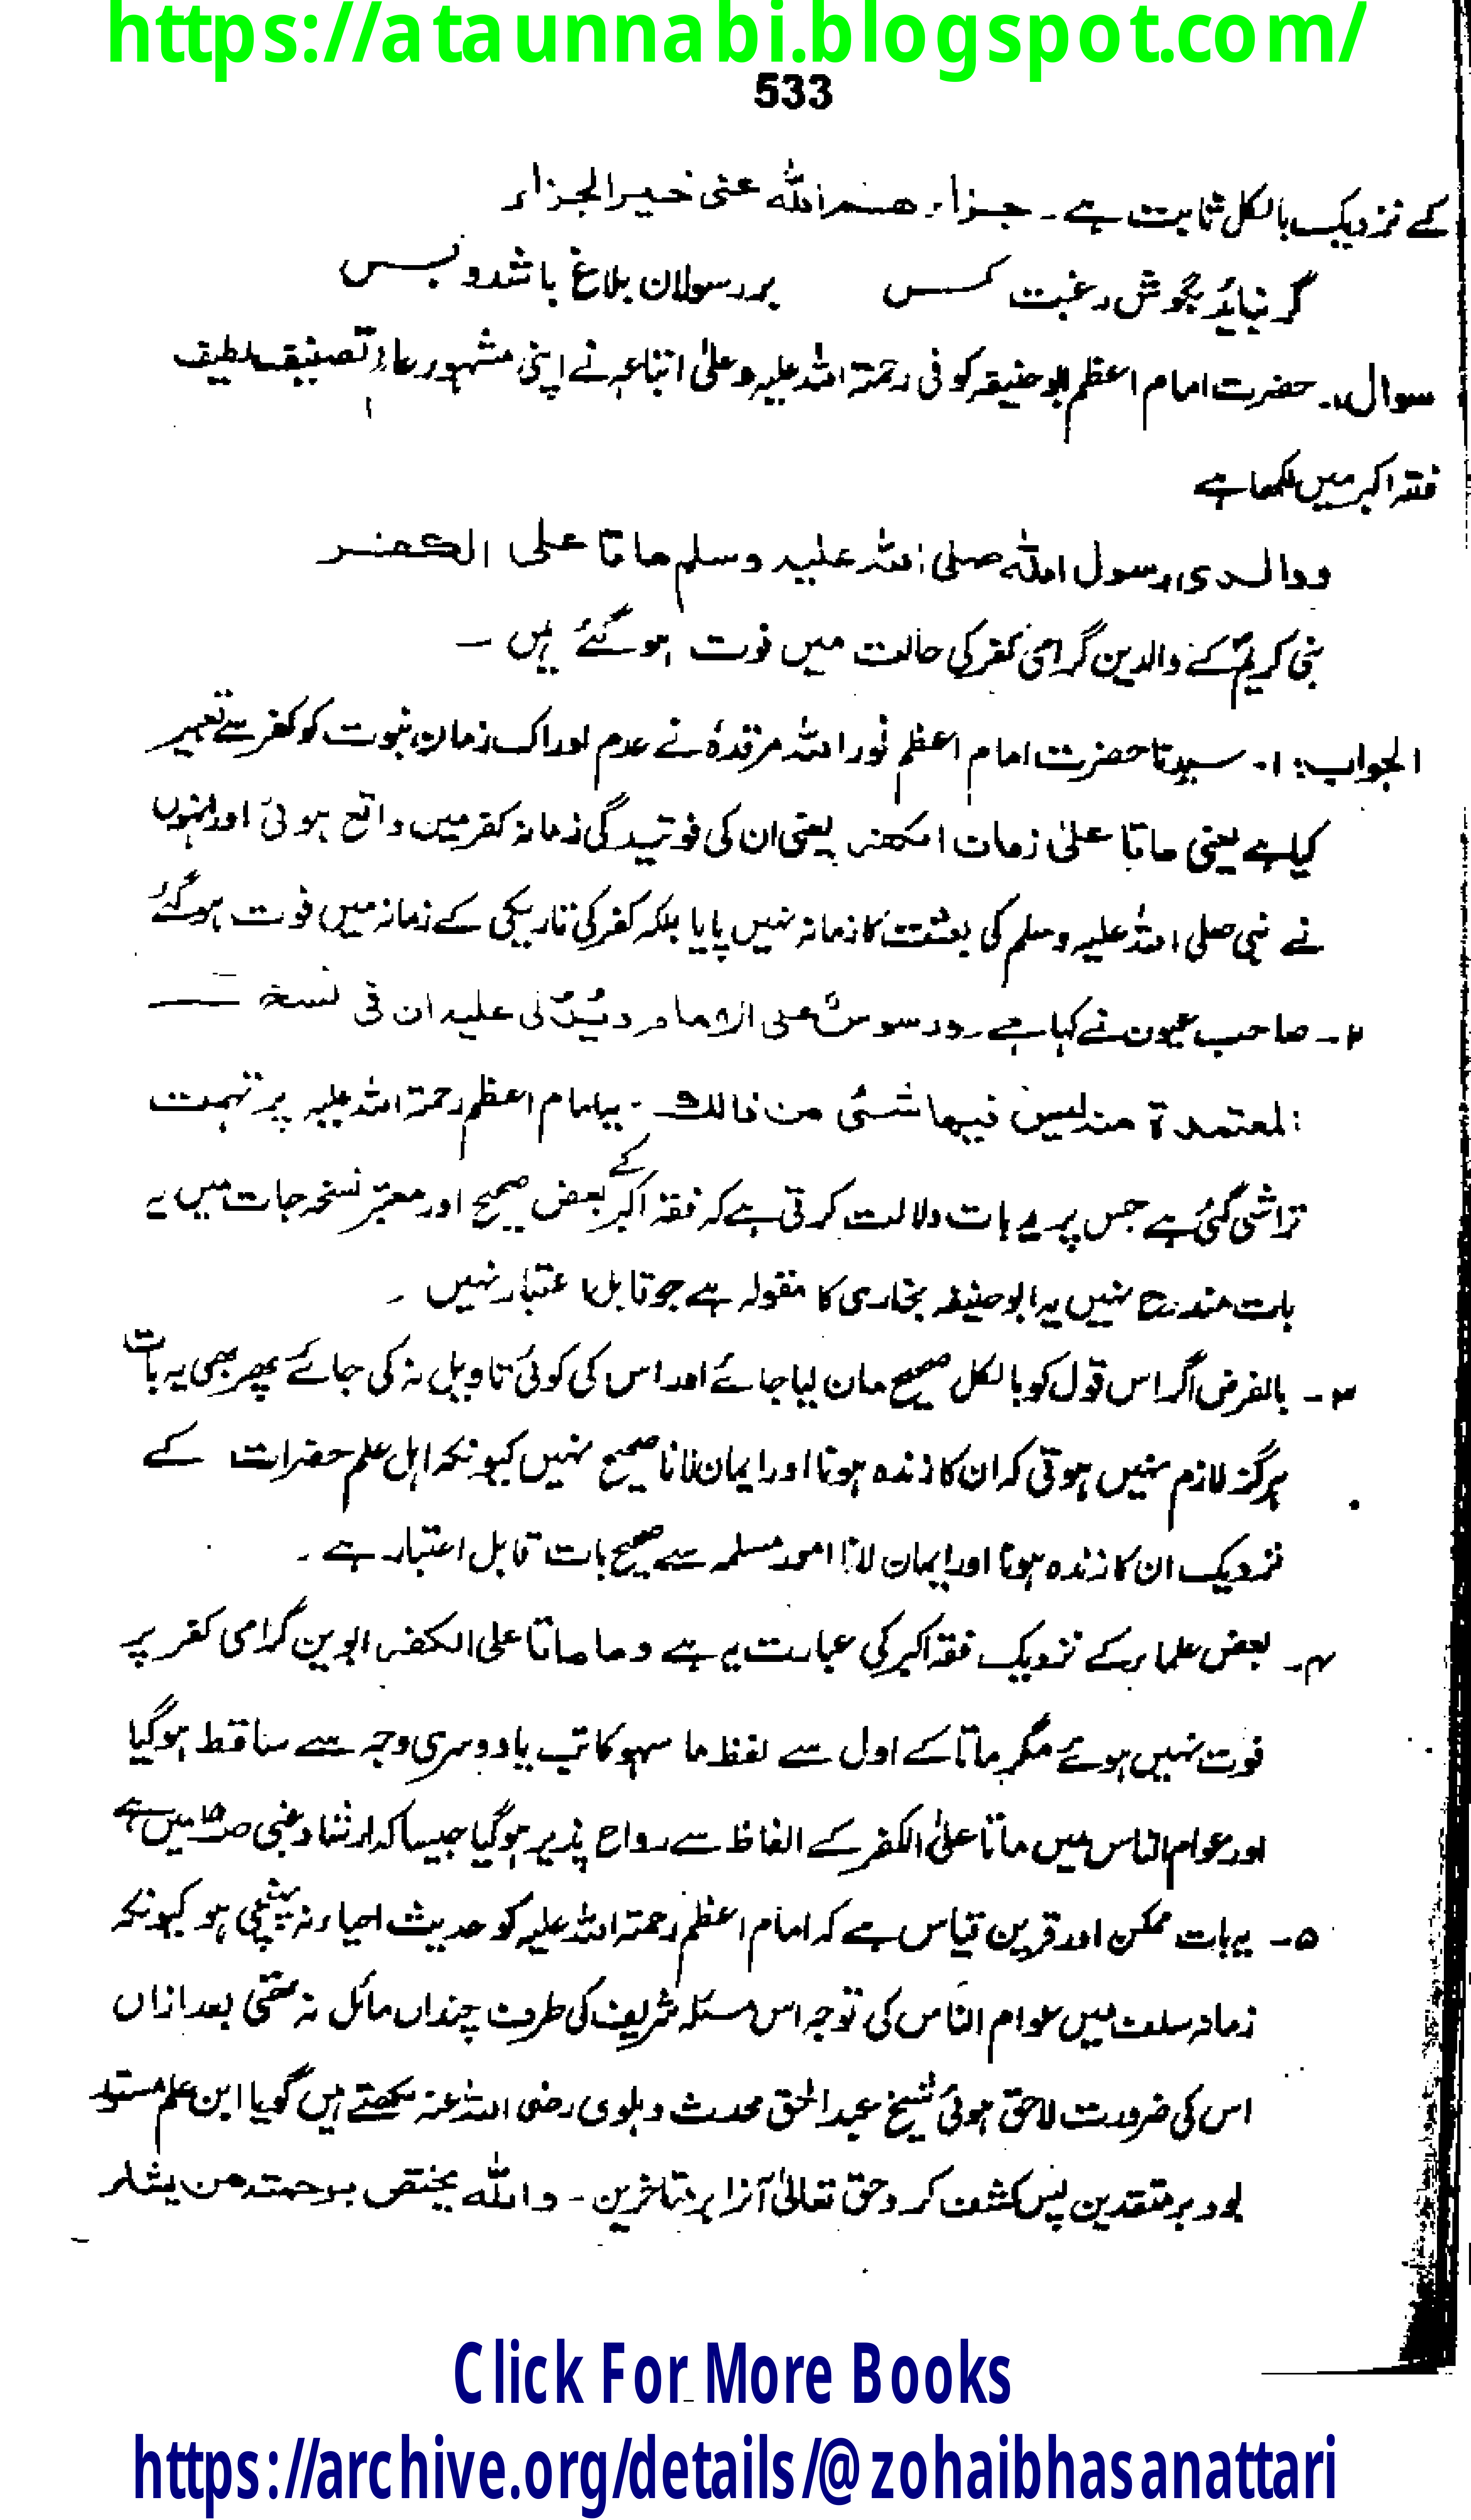 https://ataunnabi.blogspot.com/
533
کے نزدیک بالکل ثابت ہے۔ جزاءھم اللہ عنی خیر الجزاء
گر نیاید بگوش رغبت کس بر رسولان بلاغ باشد و بس
سوال:۔ حضرت امام اعظم ابو حنیفہ کوفی رحمۃ اللہ علیہ وعلیٰ اتباعہ نے اپنی مشہور عام تصنیف لطیف
فقہ اکبر میں لکھا ہے
ووالدی رسول اللہ صلی اللہ علیہ وسلم ماتا علی الکفر
نبی کریمؐ کے والدین گرامی کفر کی حالت میں فوت ہو گئے ہیں ۔
الجواب: ۱۔ سیدنا حضرت امام اعظم نور اللہ مرقدہٗ نے عدم ادراک زمان نبوت کو کفر سے تعبیر
کیا ہے یعنی ماتا علیٰ زمان الکفر یعنی ان کی فوتیدگی زمانہ کفر میں واقع ہوئی اور انہوں
نے نبی صلی اللہ علیہ وسلم کی بعثت کا زمانہ نہیں پایا بلکہ کفر کی تاریکی کے زمانہ میں فوت ہو گئے
۲۔ صاحب عیون نے کہا ہے علی الامام علیہ ان فی نسخۃ
المعتمدۃ منہ لیس فیہا شئی من ذالک ۔ یہ امام اعظم رحمۃ اللہ علیہ پر تہمت
تراشی گئی ہے جس پر یہ بات دلالت کرتی ہے کہ فقہ اکبر کے بعض صحیح اور معتبر نسخہ جات میں یہ
بات مندرج نہیں یہ ابو حنیفہ بخاری کا مقولہ ہے جو قابل اعتبار نہیں ۔
۳۔ بالفرض اگر اس قول کو بالکل صحیح مان لیا جائے اور اس کی کوئی تاویل نہ کی جائے پھر بھی یہ بات
ہرگز لازم نہیں ہوتی کہ ان کا زندہ ہونا اور ایمان لانا صحیح نہیں کیونکہ اہل علم حضرات کے
نزدیک ان کا زندہ ہونا اور ایمان لانا امور مسلمہ سے صحیح بات قابل اعتبار ہے ۔
۴۔ بعض علماء کے نزدیک فقہ اکبر کی عبارت یہ ہے وما ماتا علی الکفر ابوین گرامی کفر پر
فوت نہیں ہوئے مگر ماتا کے اول سے لفظ ما سہو کاتب یا دوسری وجہ سے ساقط ہو گیا
اور عوام الناس میں ماتا علیٰ الکفر کے الفاظ سے رواج پذیر ہو گیا جیسا کہ ارشاد غبی میں ہے
۵۔ یہ بات ممکن اور قرین قیاس ہے کہ امام اعظم رحمۃ اللہ علیہ کو حدیث احیاء نہ پہنچی ہو کیونکہ
زمانہ سلف میں عوام الناس کی توجہ اس مسئلہ شریف کی طرف چنداں مائل نہ تھی بعد ازاں
اس کی ضرورت لاحق ہوئی شیخ عبدالحق محدث دہلوی رضی اللہ عنہ لکھتے ہیں گویا این علم مستور
بود بر متقدمین پس کشف کرد حق تعالیٰ آنرا بر متاخرین ۔ واللہ یختص برحمتہ من یشاء
Click For More Books
https://archive.org/details/@zohaibhasanattari